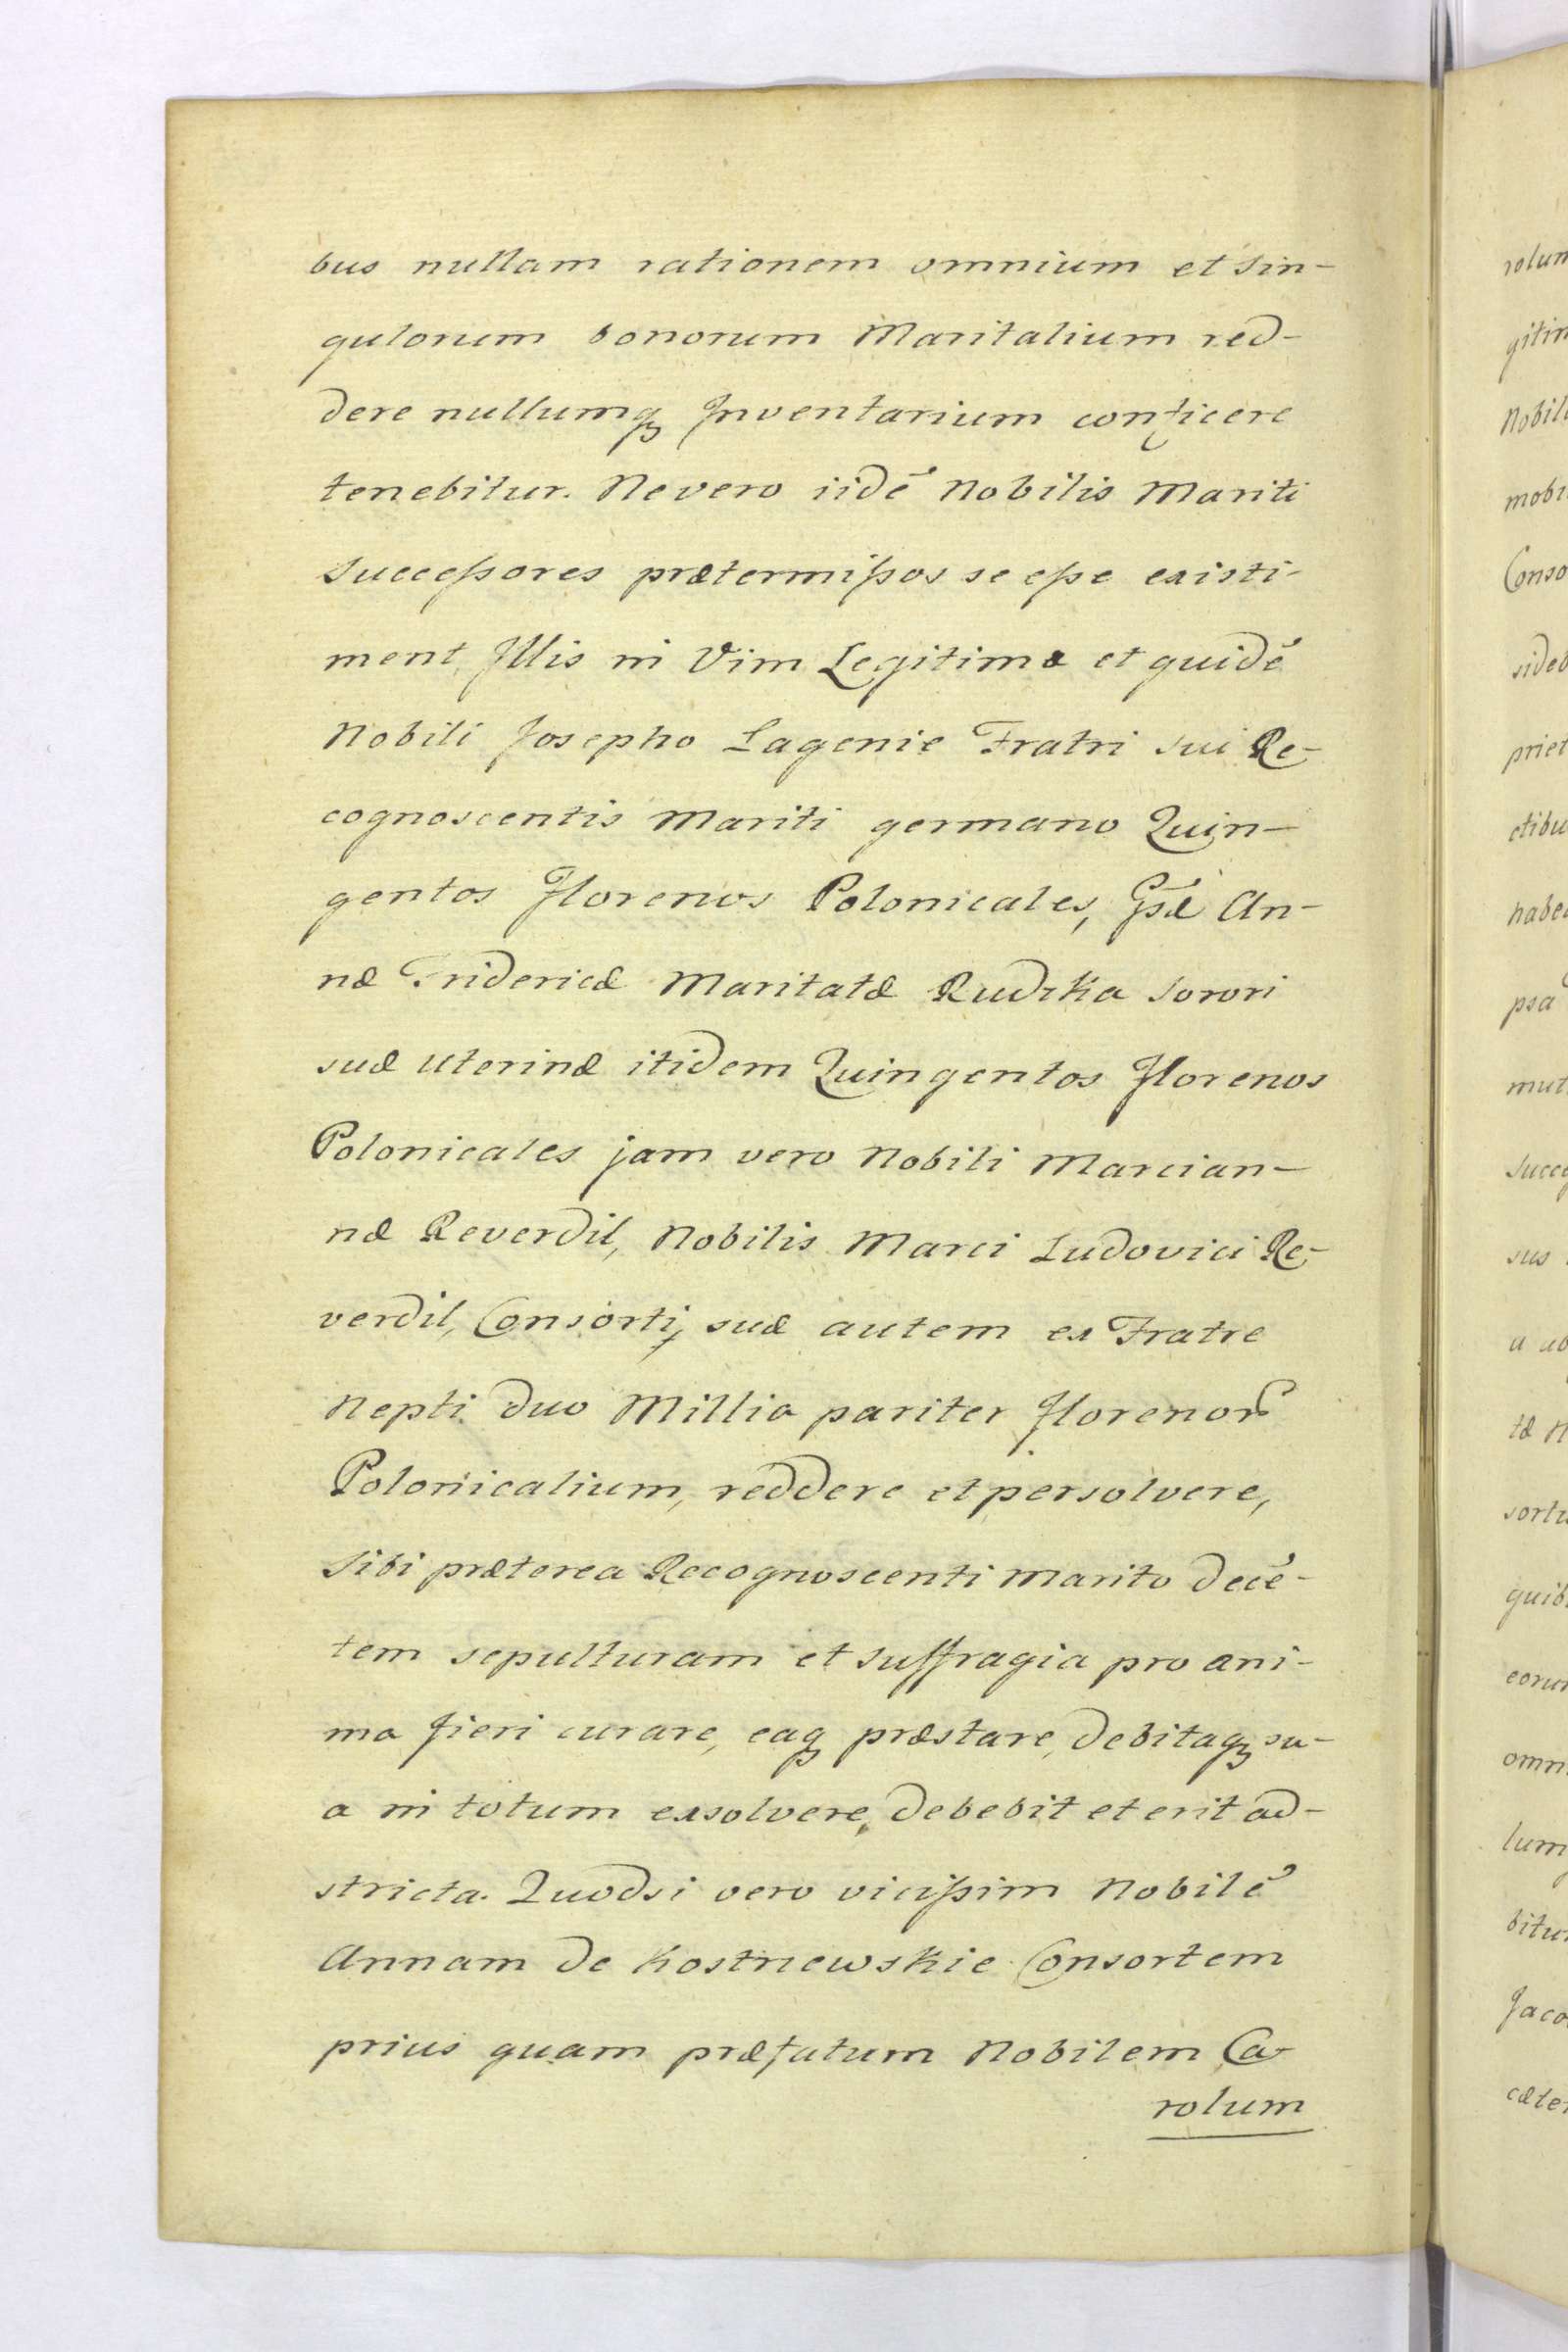 bus nullam rationem omnium et Sin-
gulorum bonorum Maritalium red-
dere nullumq; Inventarium conficere
tenebitur. Ne vero iidē Nobilis Mariti
Successores prætermissos se esse existi-
ment, Illis in Vim Legitimæ et quidē
Nobili Josepho Lagenie Fratri sui Re-
cognoscentis Mariti germano Quin-
gentos Florenos Polonicales, An-
næ Fridericæ Maritatæ Rudzka Sorori
suæ Uterinæ itidem Quingentos Florenos
Polonicales jam vero Nobili Marcian-
næ Reverdil, Nobilis Marci Ludovici Re-
verdil, Consorti, suæ autem ex Fratre
Nepti duo Millia pariter Florenor
Polonicalium, reddere et persolvere,
Sibi præterea Recognoscenti Marito decē-
tem sepulturam et suffragia pro ani-
ma fieri curare, eaq; præstare, debitaq; su-
a in totum exsolvere, debebit et erit ad-
stricta. Quodsi vero vicissim Nobilē
Annam de Kostrzewskie Consortem
prius quam præfatum Nobilem Ca-
rolum